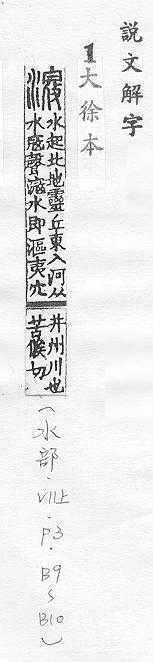 說文解字
1大徐本
滱水起北地靈丘東入河从
水寇聲滱水即漚夷水
并州川也
苦候切
(水部·VII上·P3·B9~B10)